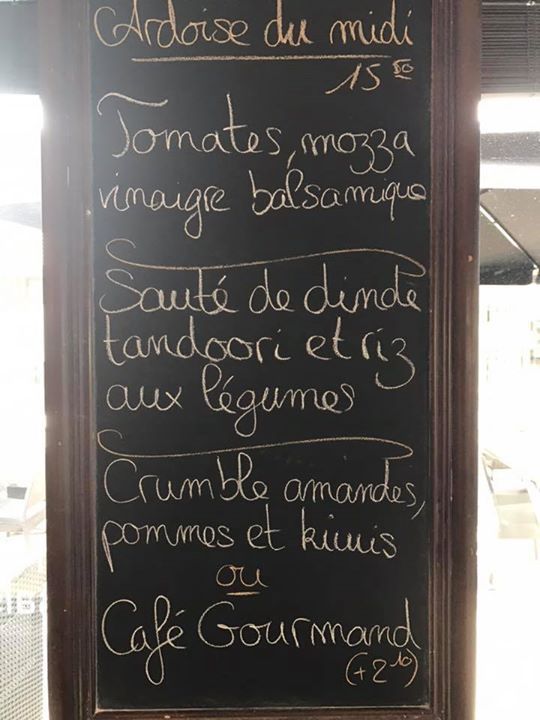 Ardoise du midi
15 50
Tomates, mozza
vinaigre balsamique
Sauté de dinde
tandoori et riz
aux légumes
Crumble amandes,
pommes et kiwis
ou
Café Gourmand
(+2 10)